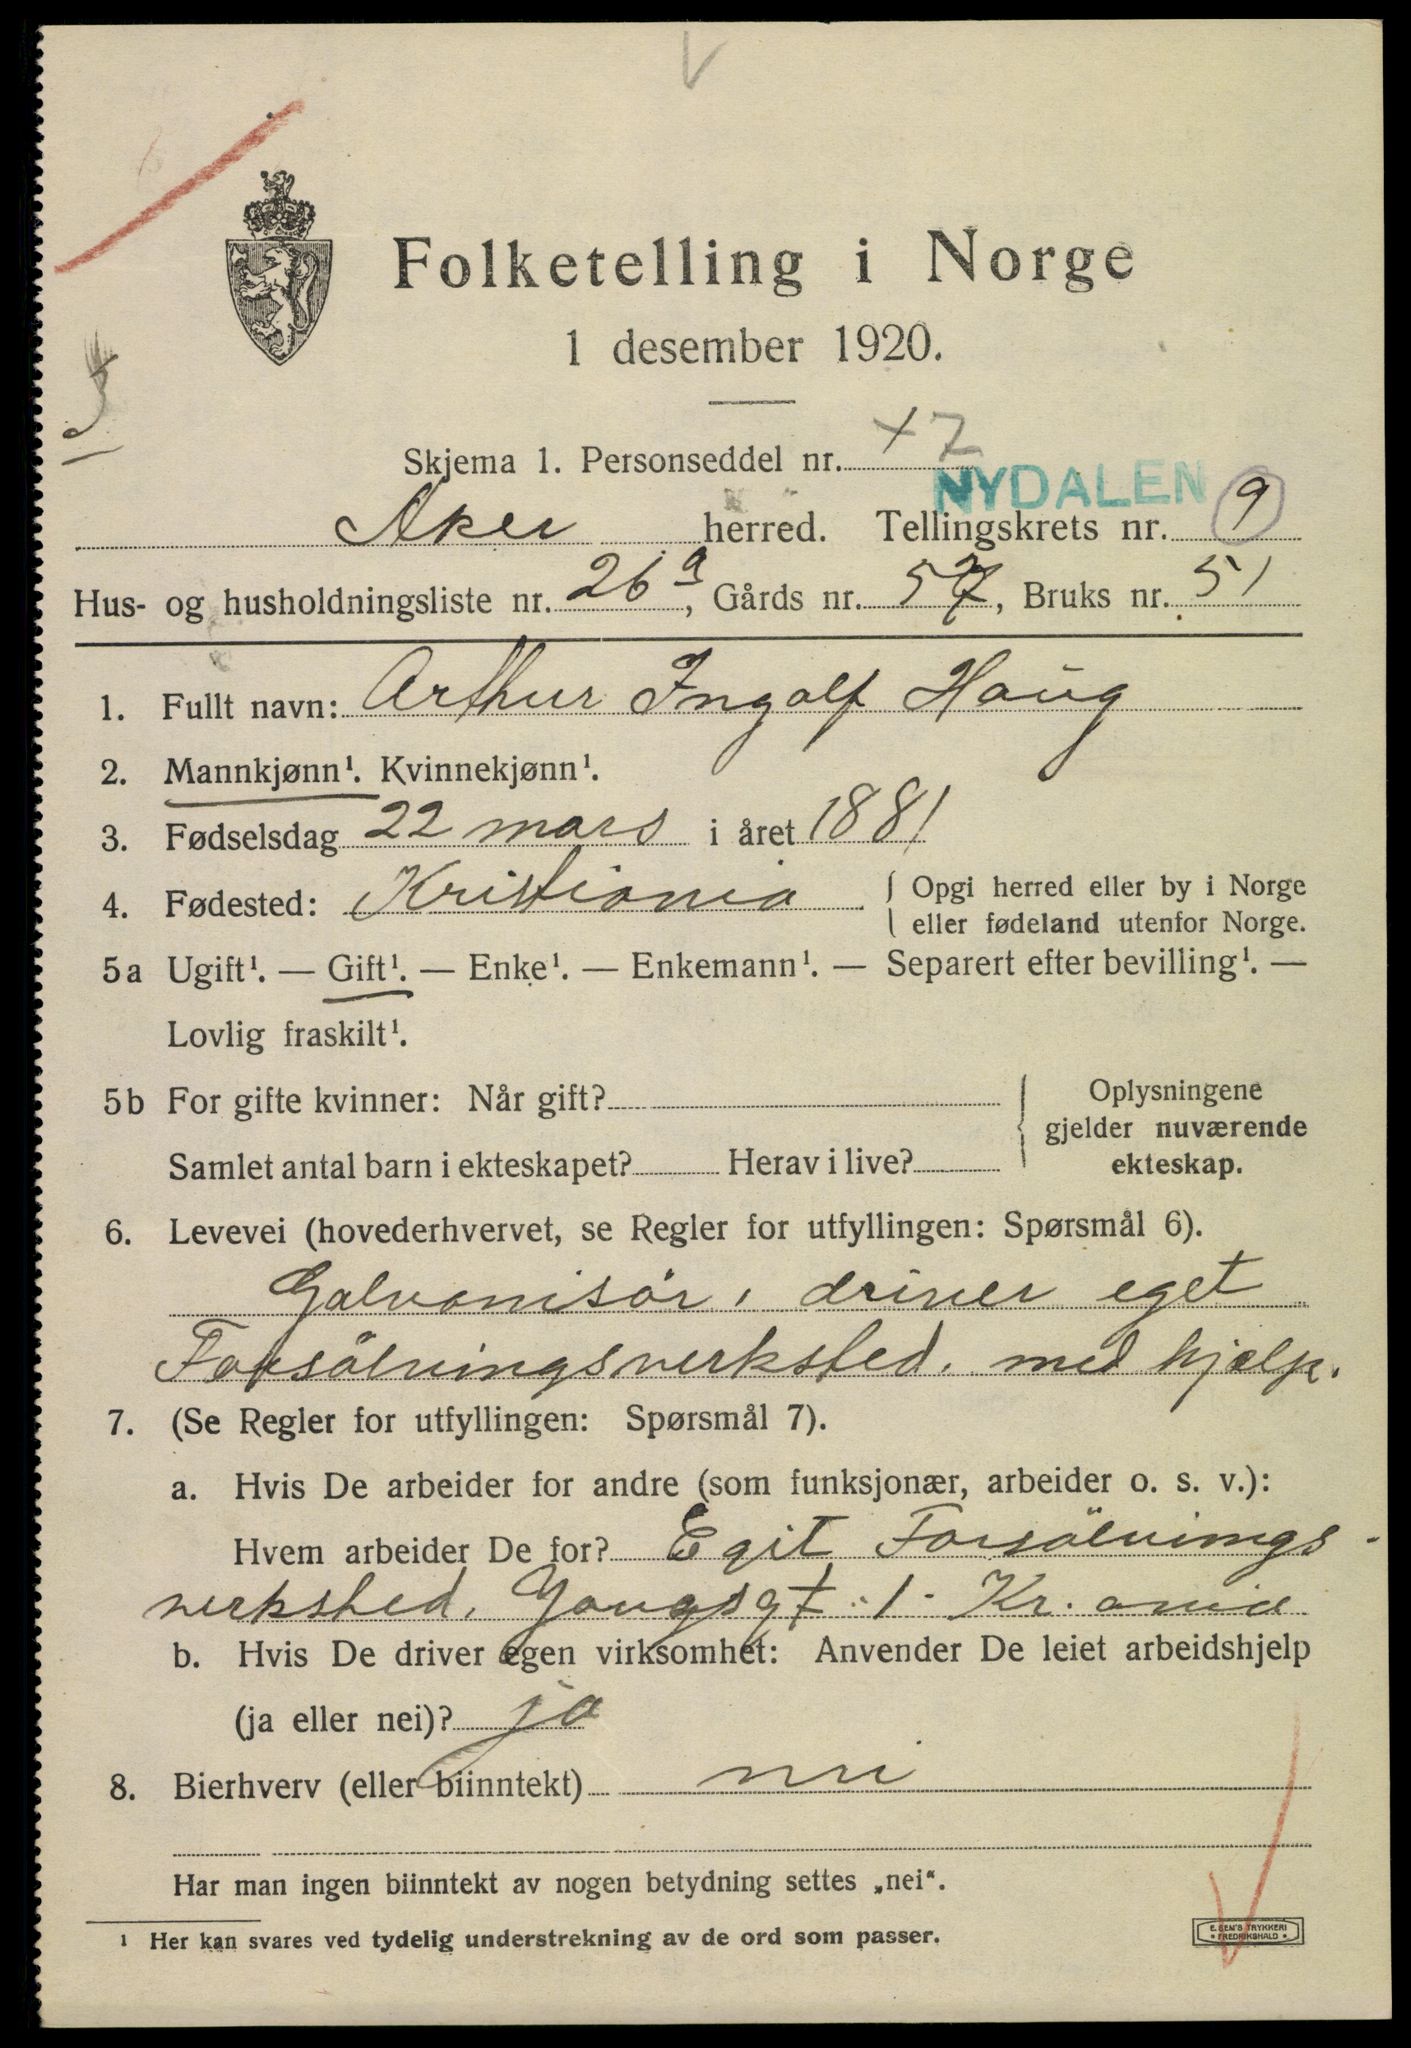 Folketelling i Norge
1 desember 1920.
Skjema 1. Personseddel nr. × 2
NYDALEN
Aker herred. Tellingskrets nr. 9
Hus- og husholdningsliste nr. 26 a, Gårds nr. 57, Bruks nr. 51
1. Fullt navn: Arthur Ingolf Haug
2. Mannkjønn¹. Kvinnekjønn¹.
3. Fødselsdag 22 mars i året 1881
4. Fødested: Kristiania { Opgi herred eller by i Norge
eller fødeland utenfor Norge.
5 a Ugift¹. — Gift¹. — Enke¹. — Enkemann¹. — Separert efter bevilling¹. —
Lovlig fraskilt¹.
5 b For gifte kvinner: Når gift?
Samlet antal barn i ekteskapet? Herav i live?
Oplysningene
gjelder nuværende
ekteskap.
6. Levevei (hovederhvervet, se Regler for utfyllingen: Spørsmål 6).
Galvanisör, driver eget
Forsölvningsverksted. med hjælp.
7. (Se Regler for utfyllingen: Spørsmål 7).
a. Hvis De arbeider for andre (som funksjonær, arbeider o. s. v.):
Hvem arbeider De for? Eget Forsölvnings-
verksted, Yougsgt. 1. Kr.ania
b. Hvis De driver egen virksomhet: Anvender De leiet arbeidshjelp
(ja eller nei)? ja
8. Bierhverv (eller biinntekt) nei
Har man ingen biinntekt av nogen betydning settes „nei“.
¹ Her kan svares ved tydelig understrekning av de ord som passer.
E. SEM'S TRYKKERI
* FREDRIKSHALD *